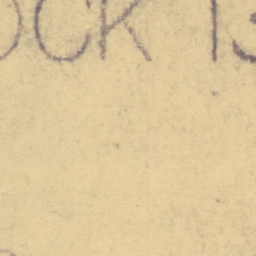 OCK 13